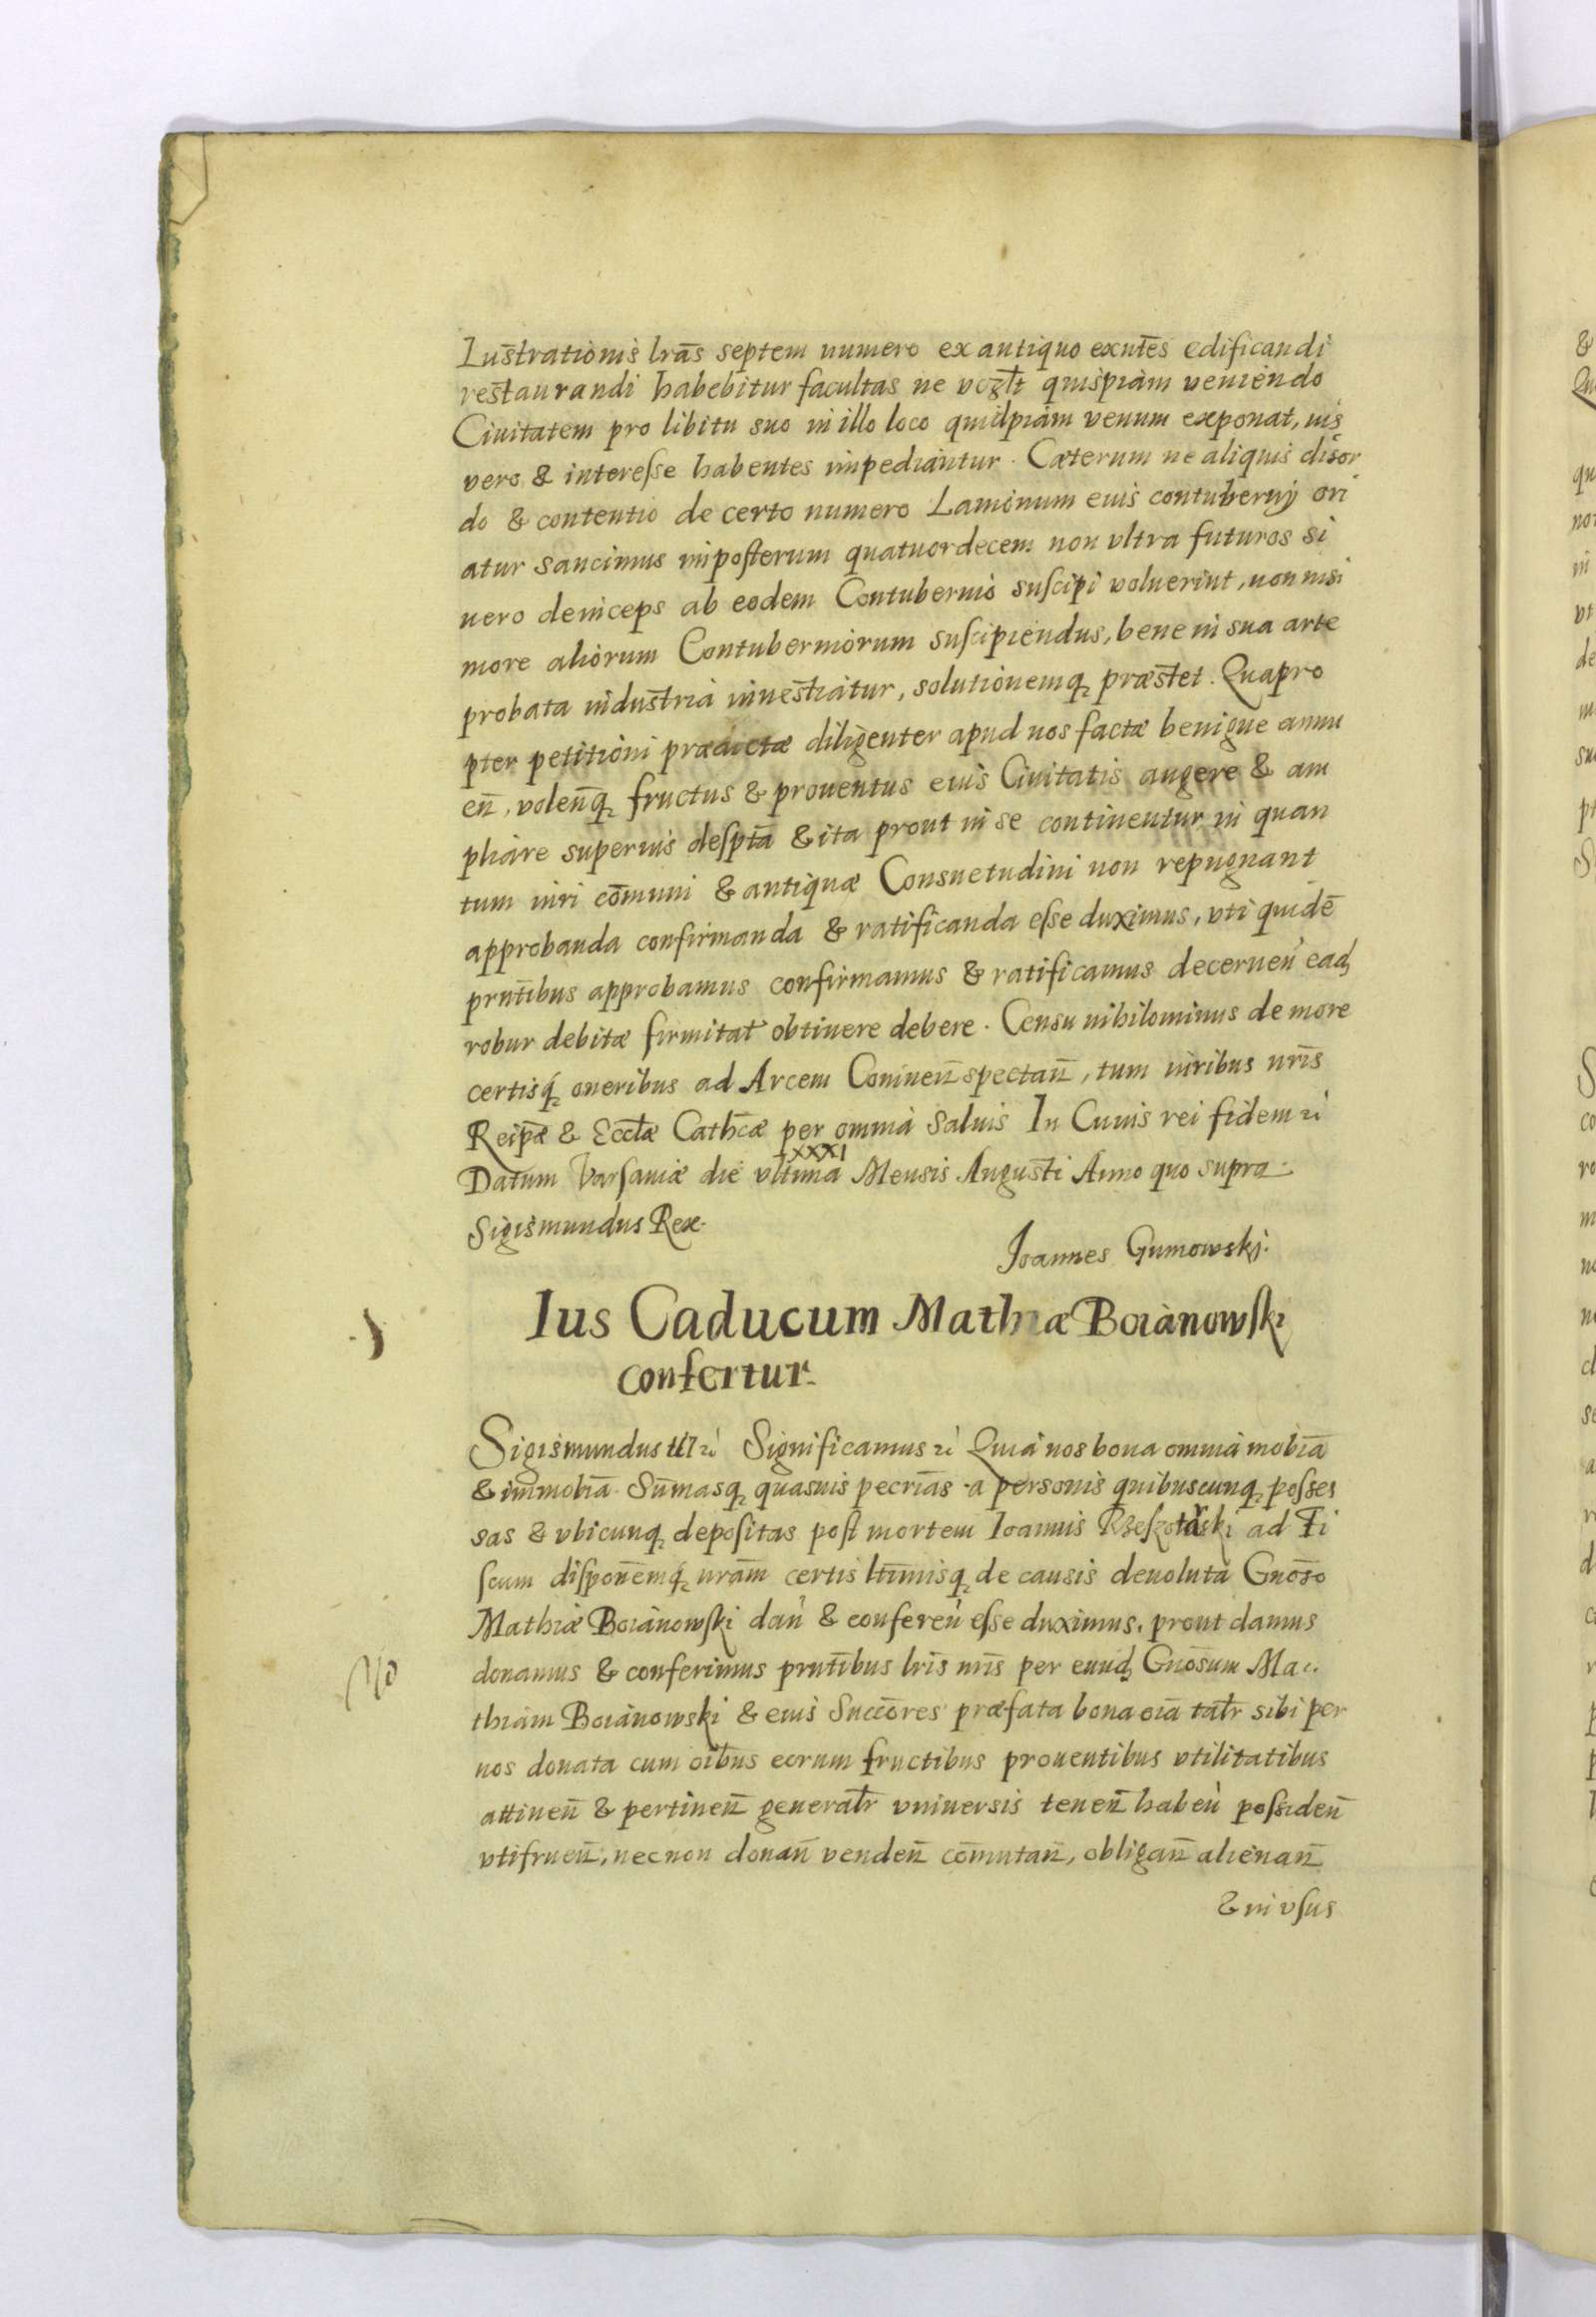 Lustrationis lrās septem numero ex antiquo exntēs edificandi
restaurandi habebitur facultas ne quispiam veniendo
Ciuitatem pro libitu suo in illo loco quidpiam venum exponat, ius
vero & interesse habentes impediantur. Cæterum ne aliquis disor
do & contentio de certo numero Lanionum eius contubernij ori
atur sancimus imposterum quatuordecem non vltra futuros si
uero deinceps ab eodem Contubernio suscipi voluerint, non nisi
more aliorum Contuberniorum suscipiendus, bene in sua arte
probata industria inuestiatur, solutionemq̨ præstet. Quapro
pter petitioni prædictæ diligenter apud nos factæ benigne annu
en̄, volen̄q̨ fructus & prouentus eius Ciuitatis augere & am
pliare superius desptā & ita prout in se continentur in quan
tum iuri com̄uni & antiquæ Consuetudini non repugnant
approbanda confirmanda & ratificanda esse duximus, vti quidē
prntībus approbamus confirmamus & ratificamus decernen̄ ead
robur debitæ firmitat obtinere debere. Censu nihilominus de more
certisq̨ oneribus ad Arcem Coninen̄ spectan̄, tum iuribus nrīs
Reipæ & Ecclæ Cathcæ per omnia saluis In Cuius rei fidem rc̀
Datum Varsauiæ die vltima XXXI Mensis Augusti Anno quo supra.
Sigismundus Rex.
Ioannes Gumowskj.
Ius Caducum Mathiæ Boianowski
confertur.
Sigismundus III rc̀ Significamus rc̀ Quia nos bona omnia mobīa
& immobīa. Sūmasq̨ quasuis pecriās a personis quibuscunq̨ posses
sas & vbicunq̨ depositas post mortem Ioannis Rzeszotarski ad Fi
scum disponēmq̨ nrām certis ltīmisq̨ de causis deuoluta Gnōso
Mathiæ Boianowski dan̄ & conferen̄ esse duximus. prout damus
donamus & conferimus prntībus lrīs nrīs per eund Gnōsum Ma
No
thiam Boianowski & eius Succōres præfata bona oīa talr sibi per
nos donata cum oībus eorum fructibus prouentibus vtilitatibus
attinen̄ & pertinen̄ generalr vniuersis tenen̄ haben̄ possiden̄
vtifruen̄, necnon donan̄ venden̄ com̄utan̄, obligan̄ alienan̄
& in vsus